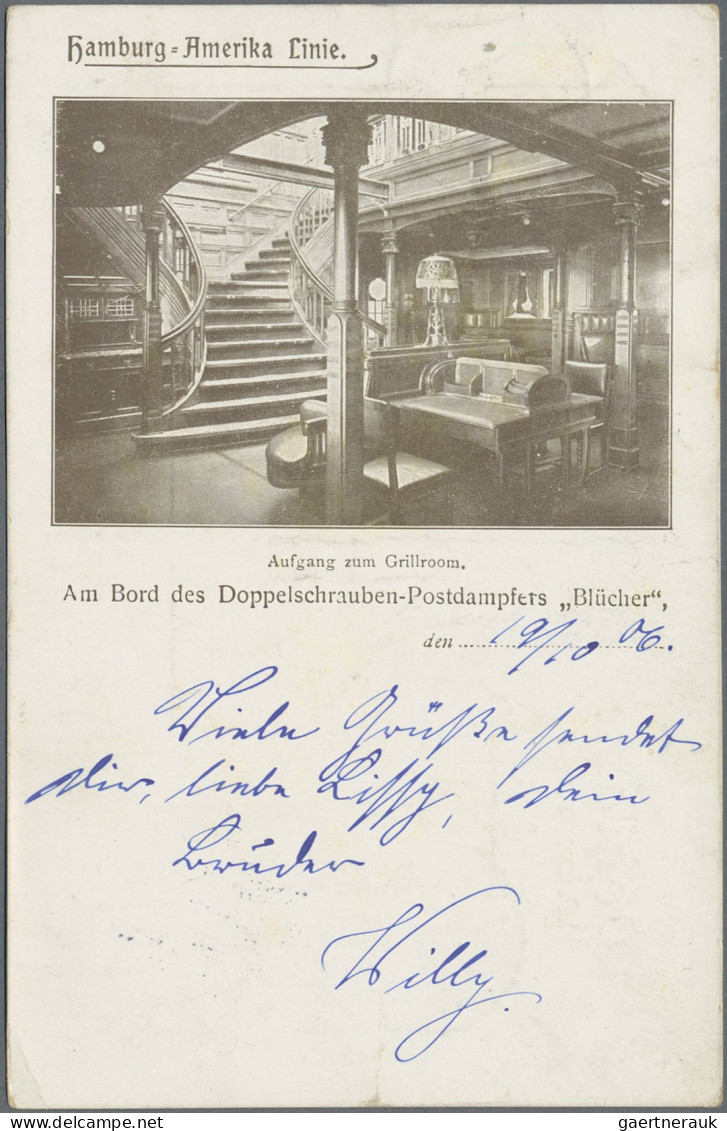 Hamburg=Amerika Linie.
Aufgang zum Grillroom.
Am Bord des Doppelschrauben-Postdampfers „Blücher“,
den 19/10 06.
Viele Grüße sendet
dir, liebe Lissy, dein
Bruder
Willy.
www.delcampe.net
gaertnerauk